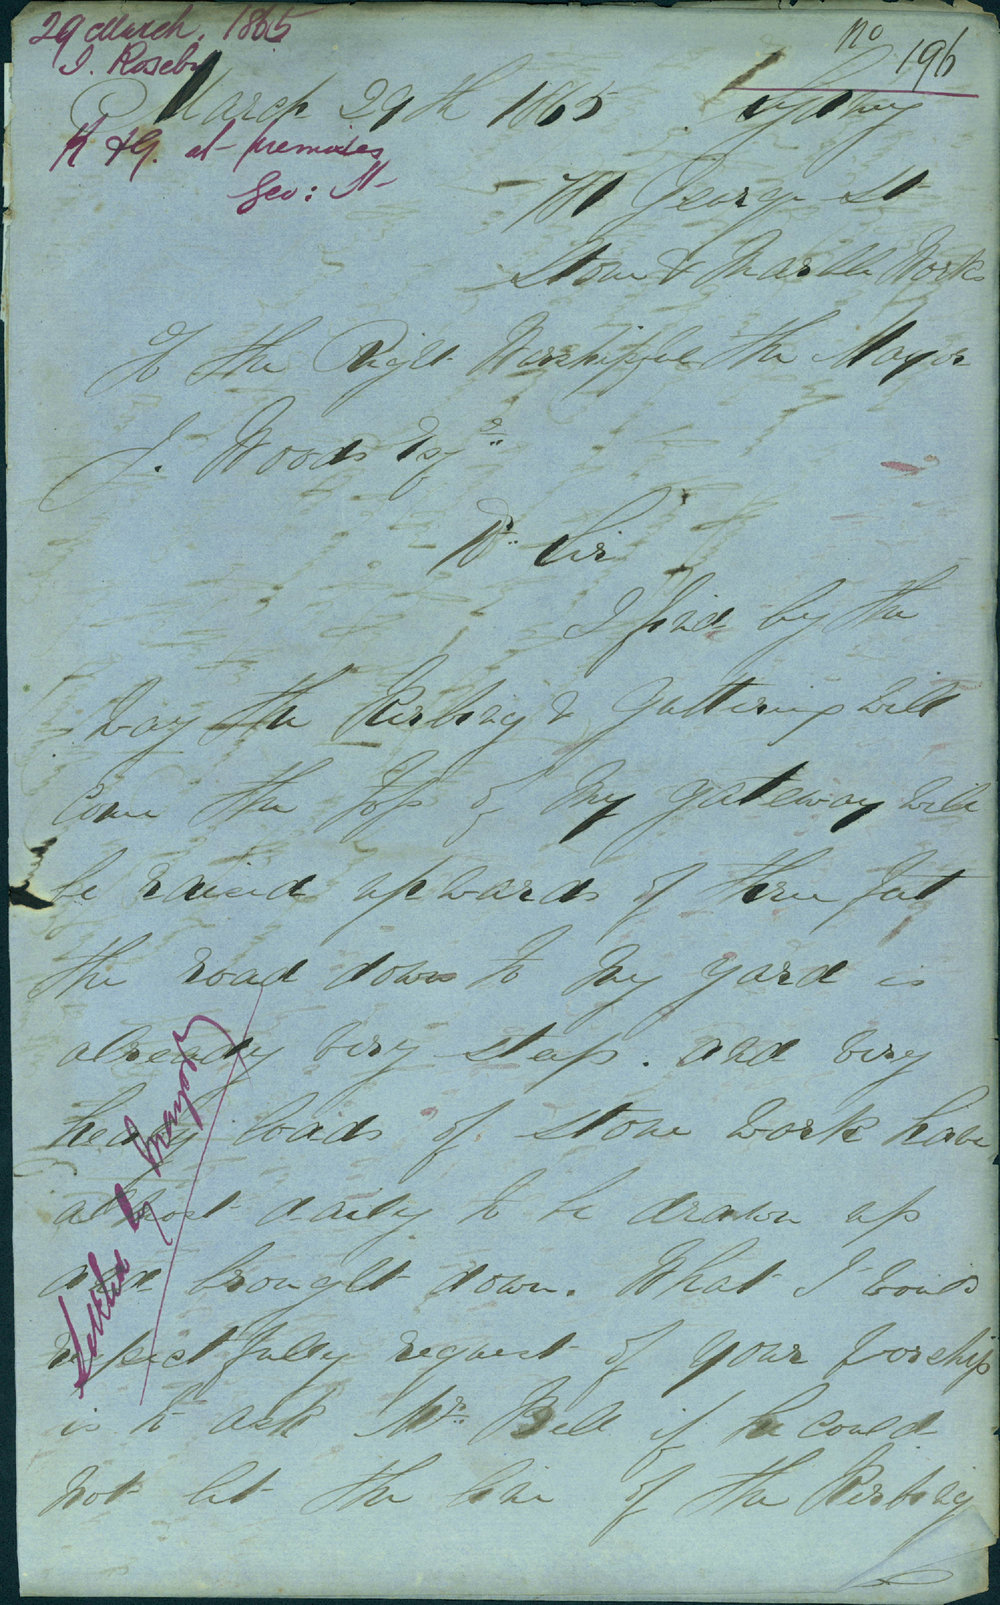 29 March, 1865
J. Roseby
K & G. at premises
Geo: St
No 196
March 29th 1865 Sydney
George St
Stone & Marble Works
To the Right Worshipful the Mayor
J. Woods Esqr
Dr Sir
I find by the
way the Kerbing & guttering will
come the top of my gateway will
be raised upwards of three feet
the road down to my yard is
already very steep. and very
heavy loads of stone work have
almost daily to be drawn up
and brought down. What I would
respectfully request of your worship
is to ask Mr. Bell if he could
not let the line of the Kerbing
Settled by Mayor